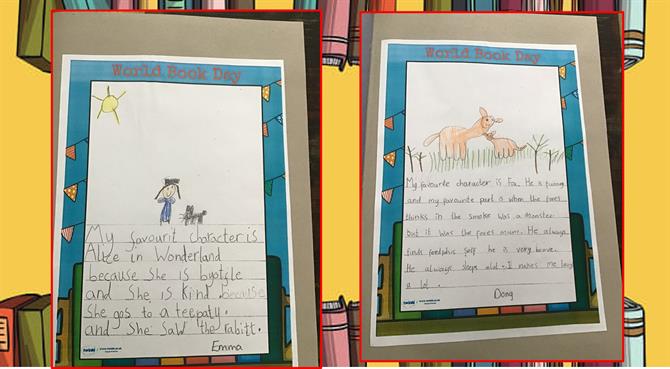 World Book Day
My favourit character is
Alice in Wonderland
because she is
and she is kjind because
She gos to a teepaty.
and she saw the rabitt.
Emma
twinkl
World Book Day
My favourite character is Fox. He is funny
and my favourite part is when the foxes
thinks in the smoke was a monster
but it was the foxes mum. He always
finds self he is very brave.
He always sleeps alot. It makes me
a lot.